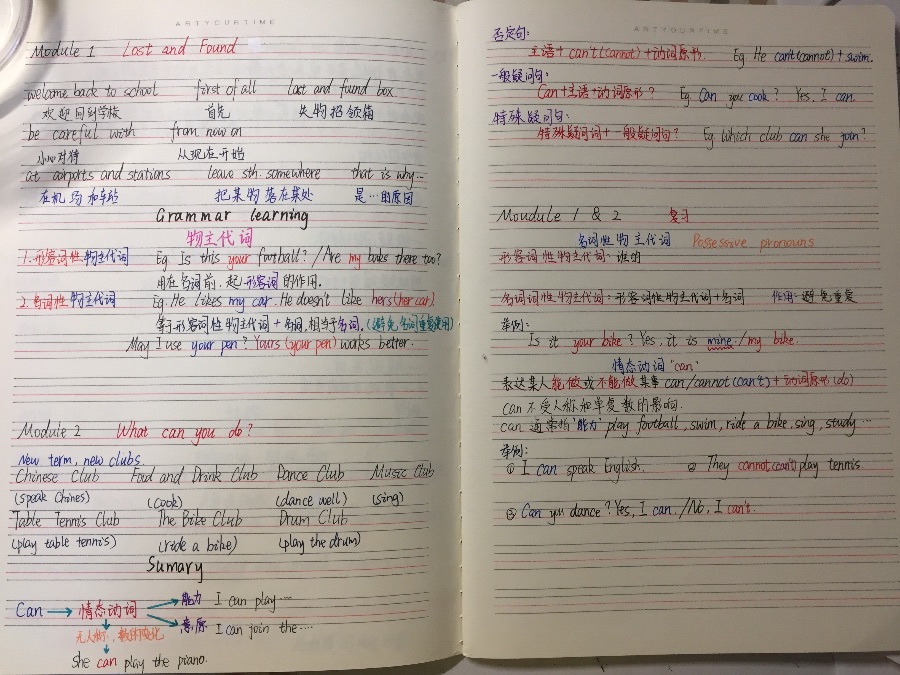 ARTYOURTIME
Module 1 Lost and Found
welcome back to school first of all lost and found box
欢迎回到学校 首先 失物招领箱
be careful with from now on
小心对待 从现在开始
at airports and stations leave sth. somewhere that is why...
在机场和车站 把某物落在某处 是…的原因
Grammar learning
物主代词
1.形容词性物主代词 Eg Is this your football? / Are my books there too?
用在名词前,起形容词的作用。
2.名词性物主代词 Eg He likes my car. He doesn't like hers (her car)
等于形容词性物主代词+名词,相当于名词。(避免名词重复使用)
May I use your pen? Yours (your pen) works better.
Module 2 What can you do?
New term, new clubs
Chinese Club Food and Drink Club Dance Club Music Club
(speak Chines) (cook) (dance well) (sing)
Table Tennis Club The Bike Club Drum Club
(play table tennis) (ride a bike) (play the drum)
Sumary
能力 I can play…
Can 情态动词
意愿 I can join the…
无人称
she can play the piano.
ARTYOURTIME
否定句:
主语+can't(cannot)+动词原形. Eg He can't(cannot)+swim.
一般疑问句:
Can+主语+动词原形? Eg Can you cook? Yes, I can.
特殊疑问句:
特殊疑问词+一般疑问句? Eg Which club can she join?
Moudule 1 & 2 复习
名词性物主代词 Possessive pronouns
形容词性物主代词:谁的
名词词性物主代词:形容词性物主代词+名词 作用:避免重复
举例:
Is it your bike? Yes, it is mine./my bike.
情态动词"can"
表达某人能做或不能做某事 can/cannot(can't)+动词原形(do)
can不受人称和单复数的影响.
can 通常指"能力" play football, swim, ride a bike, sing, study…
举例:
① I can speak English. ② They cannot(can't) play tennis.
③ Can you dance? Yes, I can. /No, I can't.